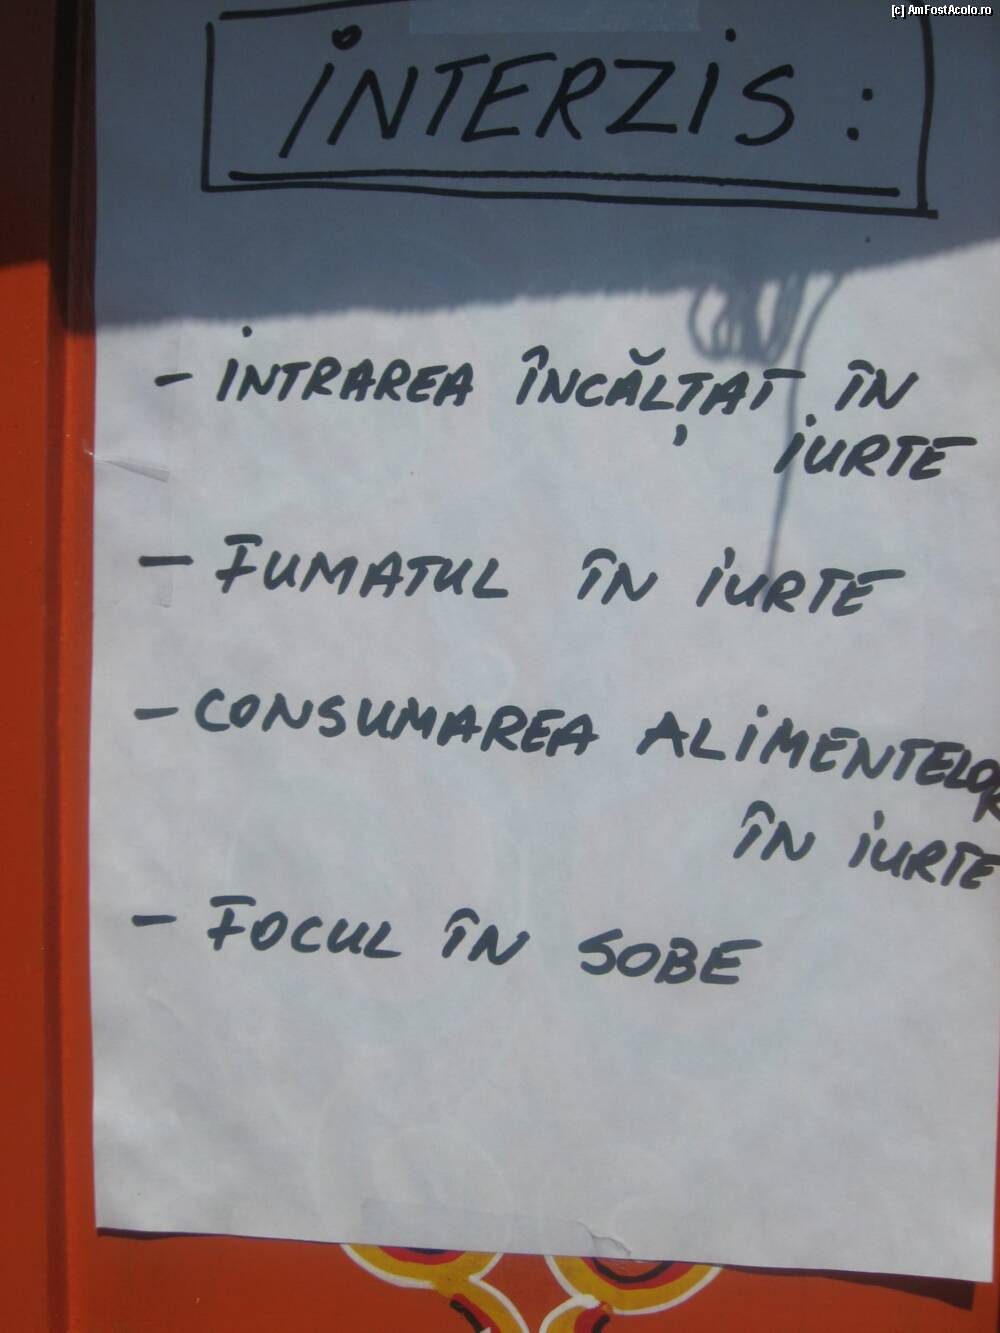 [c] AmFostAcolo.ro
INTERZIS :
- INTRAREA ÎNCĂLȚAT ÎN
IURTE
- FUMATUL ÎN IURTE
- CONSUMAREA ALIMENTELOR
ÎN IURTE
- FOCUL ÎN SOBE